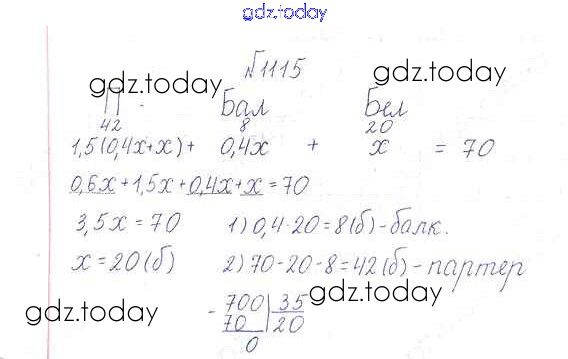 gdz.today
№1115
gdz.today gdz.today
П Бал Бел
42 8 20
1,5(0,4x+x)+ 0,4x + x = 70
0,6x+1,5x+0,4x+x=70
3,5x=70 1) 0,4·20=8(б)-балк.
x=20(б) 2) 70-20-8=42(б)-партер
gdz.today
- 700 | 35
70 | 20
0
gdz.today gdz.today